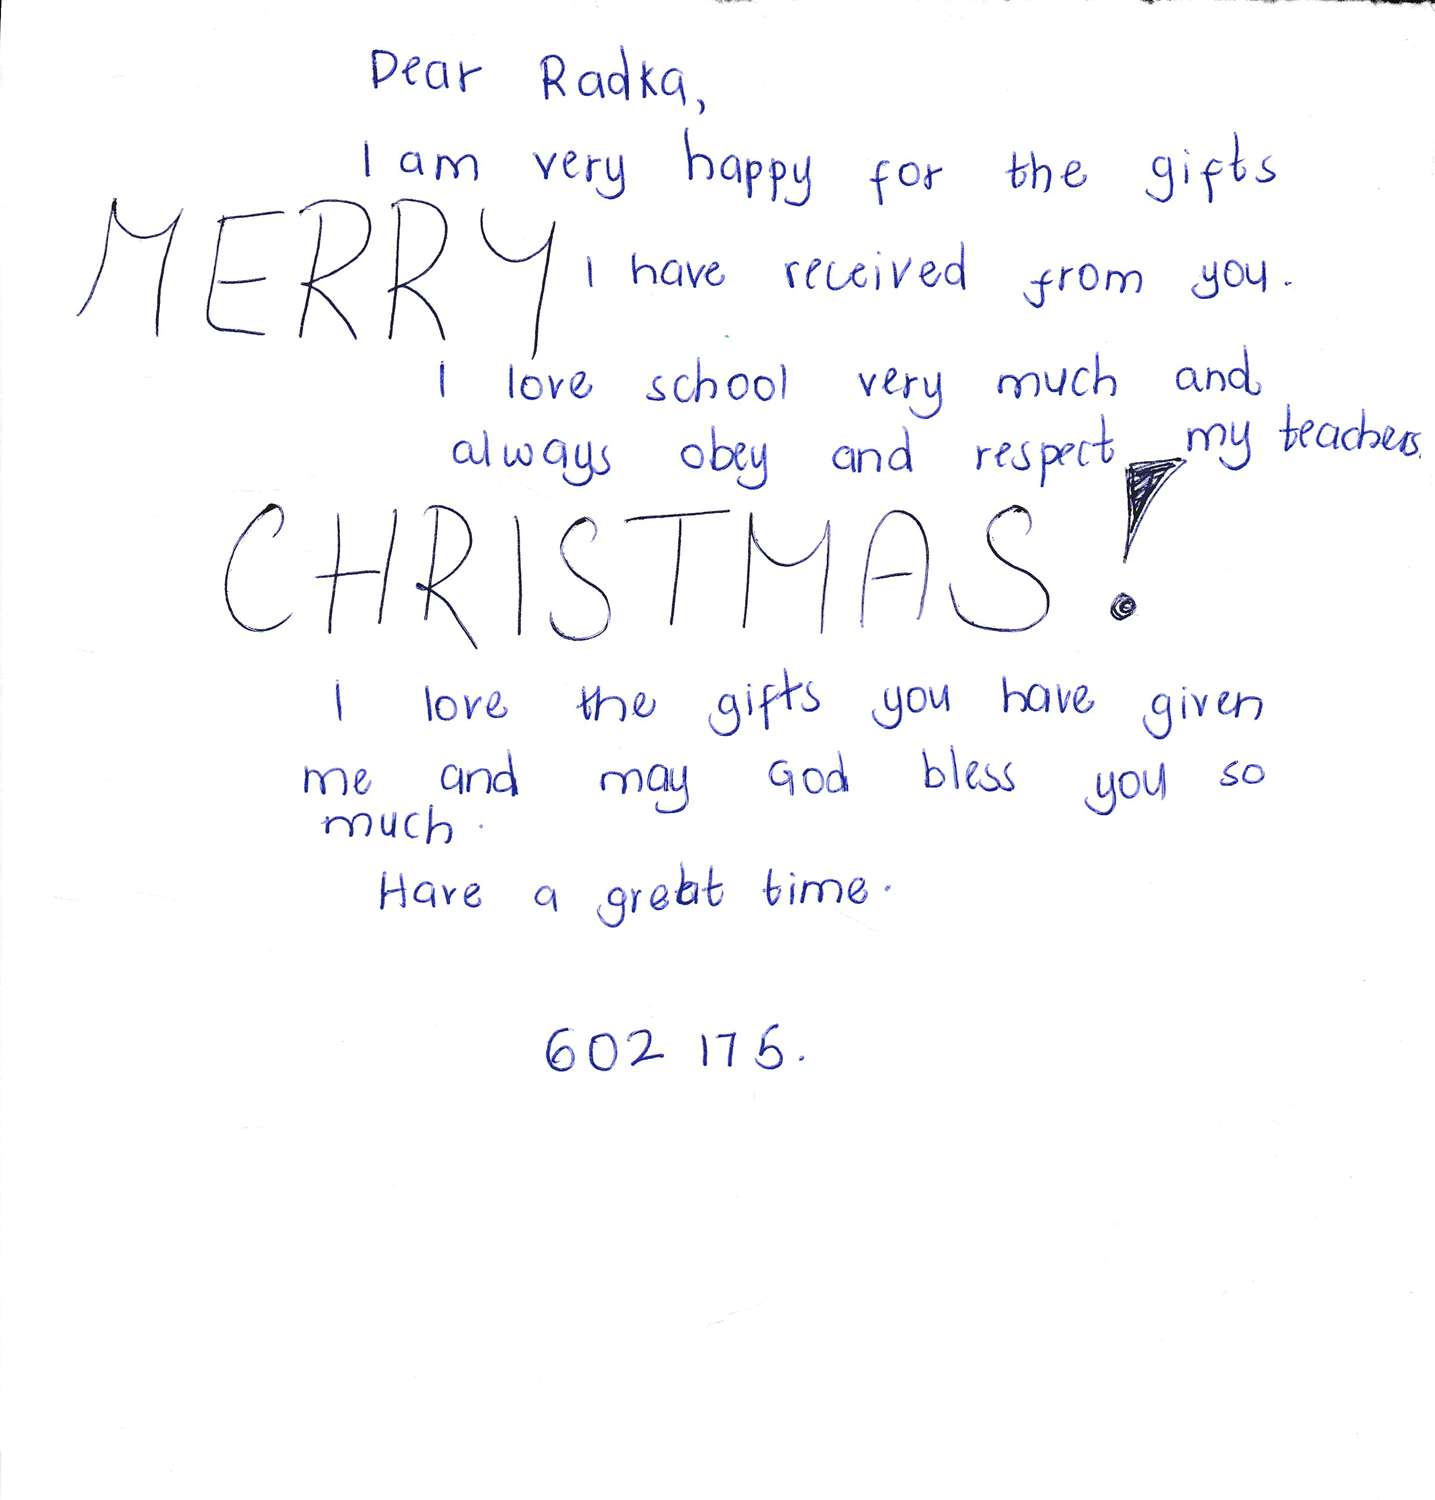 Dear Radka,
I am very happy for the gifts
MERRY I have received from you.
I love school very much and
always obey and respect my teachers.
CHRISTMAS!
I love the gifts you have given
me and may God bless you so
much.
Have a great time.
602 175.